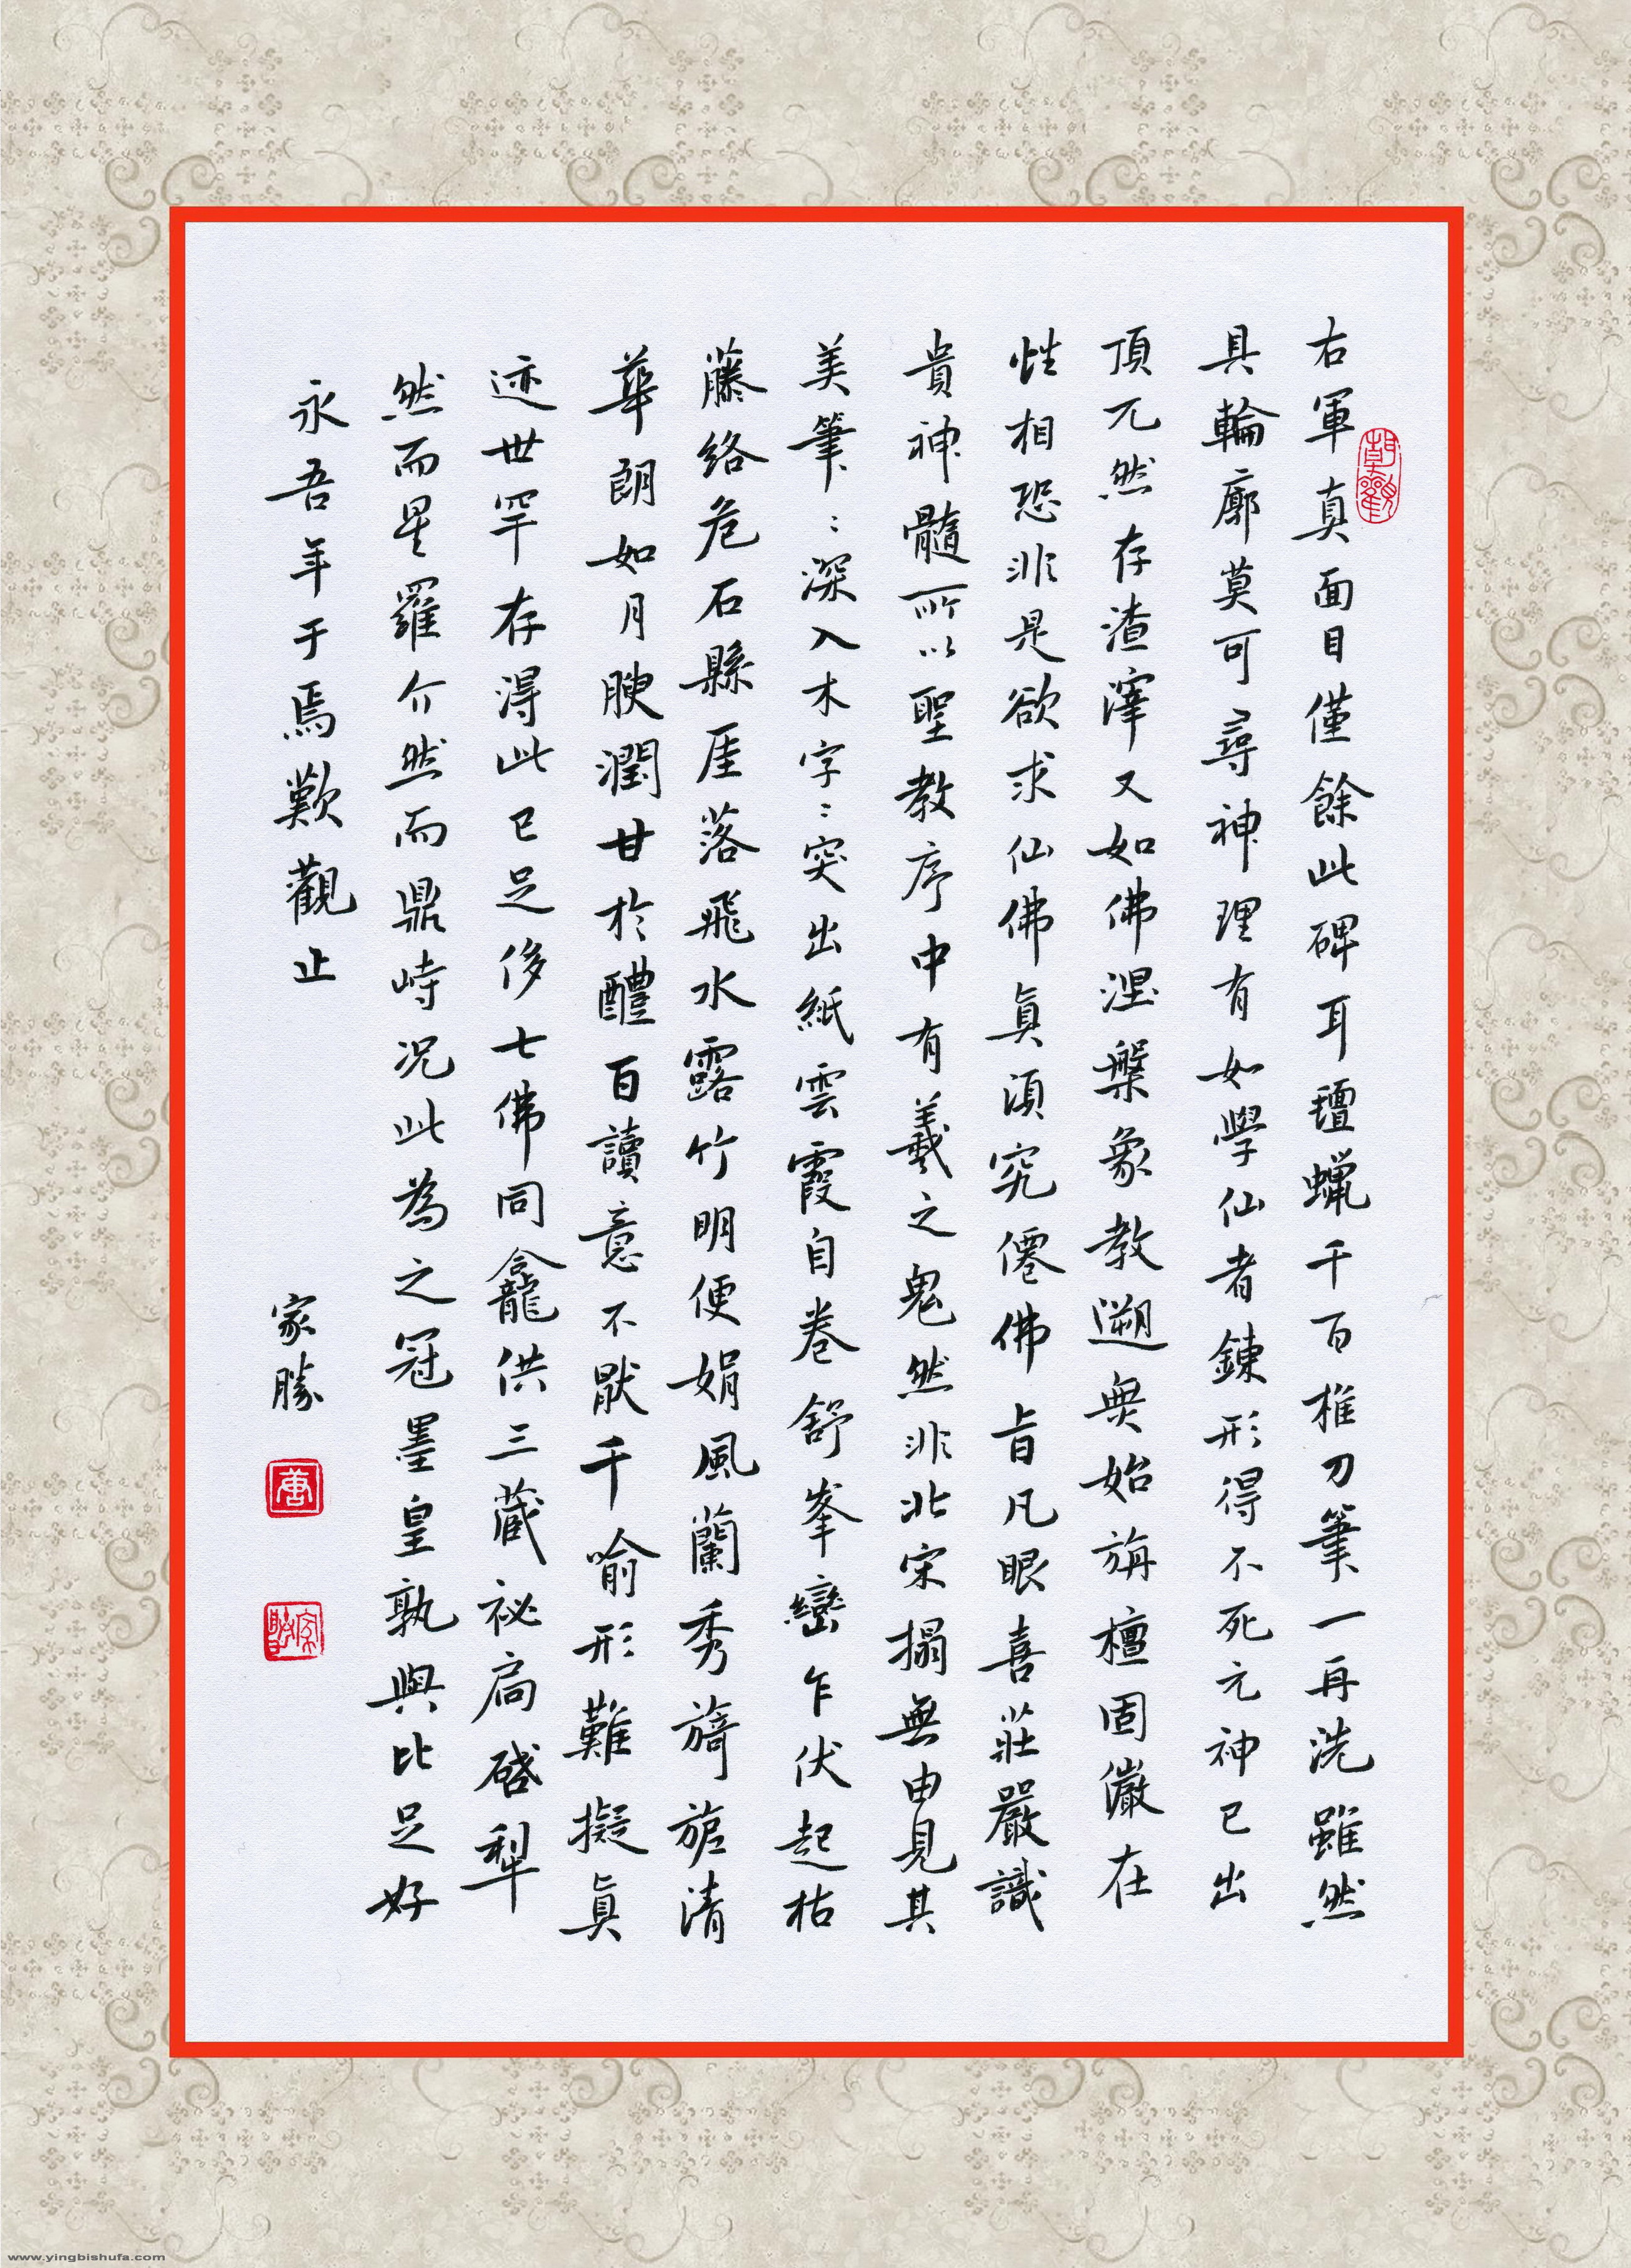 右軍真面目僅餘此碑耳氊蠟千百椎刀筆一再洗雖然
具輪廓莫可尋神理有如學仙者鍊形得不死元神已出
頂兀然存渣滓又如佛涅槃象教遡無始旃檀固儼在
性相恐非是欲求仙佛真須究僊佛旨凡眼喜莊嚴識
貴神髓所以聖教序中有羲之鬼然非北宋搨無由見其
美筆〻深入木字〻突出紙雲霞自卷舒峯巒乍伏起枯
藤絡危石縣厓落飛水露竹明便娟風蘭秀旖旎清
華朗如月腴潤甘於醴百讀意不猒千喻形難擬真
迹世罕存得此已足侈七佛同龕供三藏祕扃啓犁
然而星羅介然而鼎峙況此為之冠墨皇孰與比足好
永吾年于焉歎觀止
家勝
唐
家勝
www.yingbishufa.com